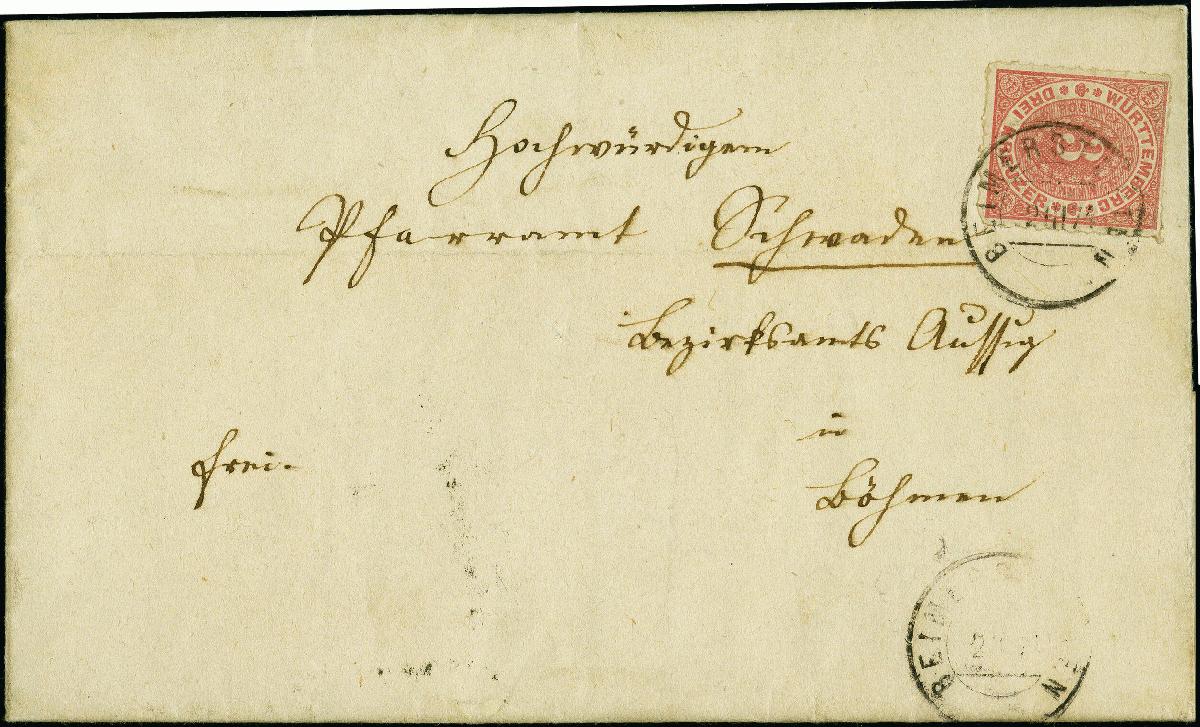 Hochwürdigem
Pfarramt Schwaden
Bezirksamts Aussig
in
Böhmen
frei.
DREI KREUZER
WÜRTTEMBERG
POST
3
BEIMERS EN
BEIM N